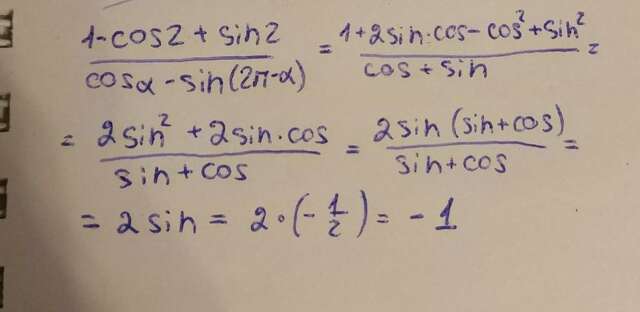 (1-cos2 + sin2)/(cosα - sin(2π-α)) = (1+2sin·cos-cos²+sin²)/(cos+sin) =
= (2sin² + 2sin·cos)/(sin+cos) = (2sin(sin+cos))/(sin+cos) =
= 2sin = 2·(-1/2) = -1